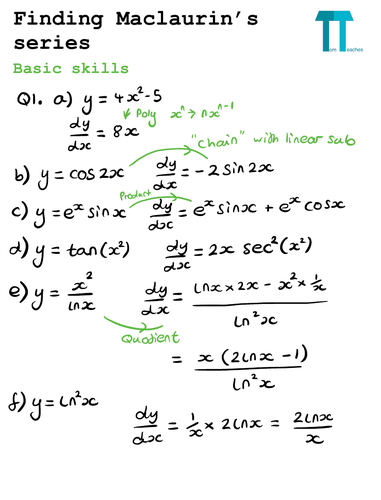 Finding Maclaurin's
series
TT
Tom Teaches
Basic skills
Q1. a) y = 4x²-5
↙ Poly xⁿ → nxⁿ⁻¹
dy/dx = 8x
"chain" with linear sub
b) y = cos 2x dy/dx = -2 sin 2x
Product
c) y = eˣ sin x dy/dx = eˣ sinx + eˣ cosx
d) y = tan(x²) dy/dx = 2x sec²(x²)
e) y = x²/lnx dy/dx = (lnx × 2x - x² × 1/x)/ln²x
Quotient
= x(2lnx - 1)/ln²x
f) y = ln²x
dy/dx = 1/x × 2lnx = 2lnx/x